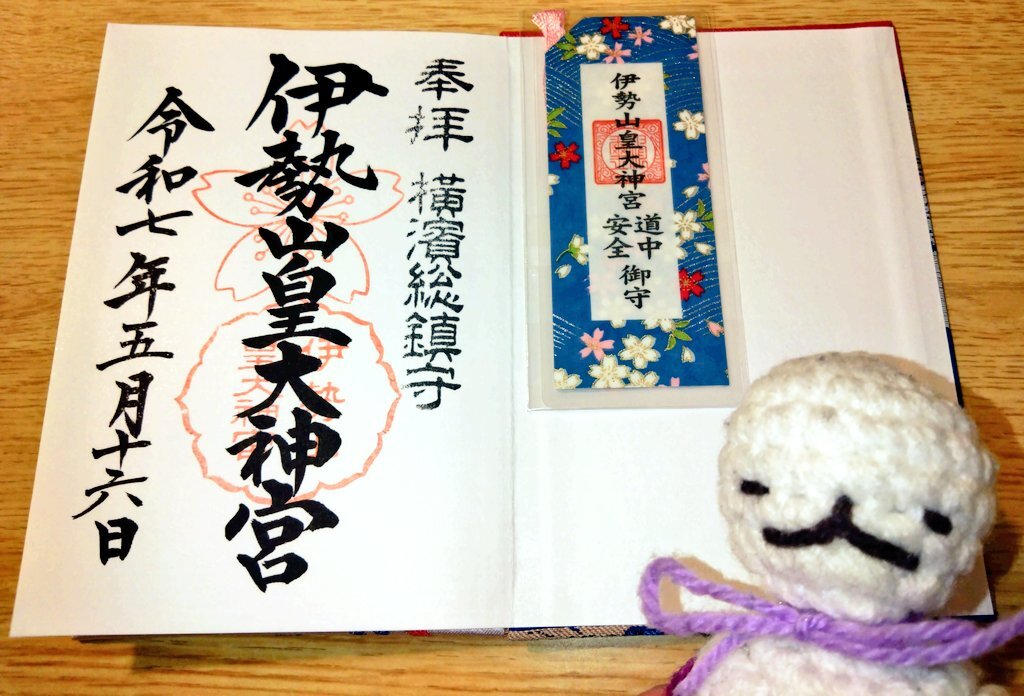 奉拝 横濱総鎮守
伊勢山皇大神宮
令和七年五月十六日
伊勢山皇大神宮
道中
安全
御守